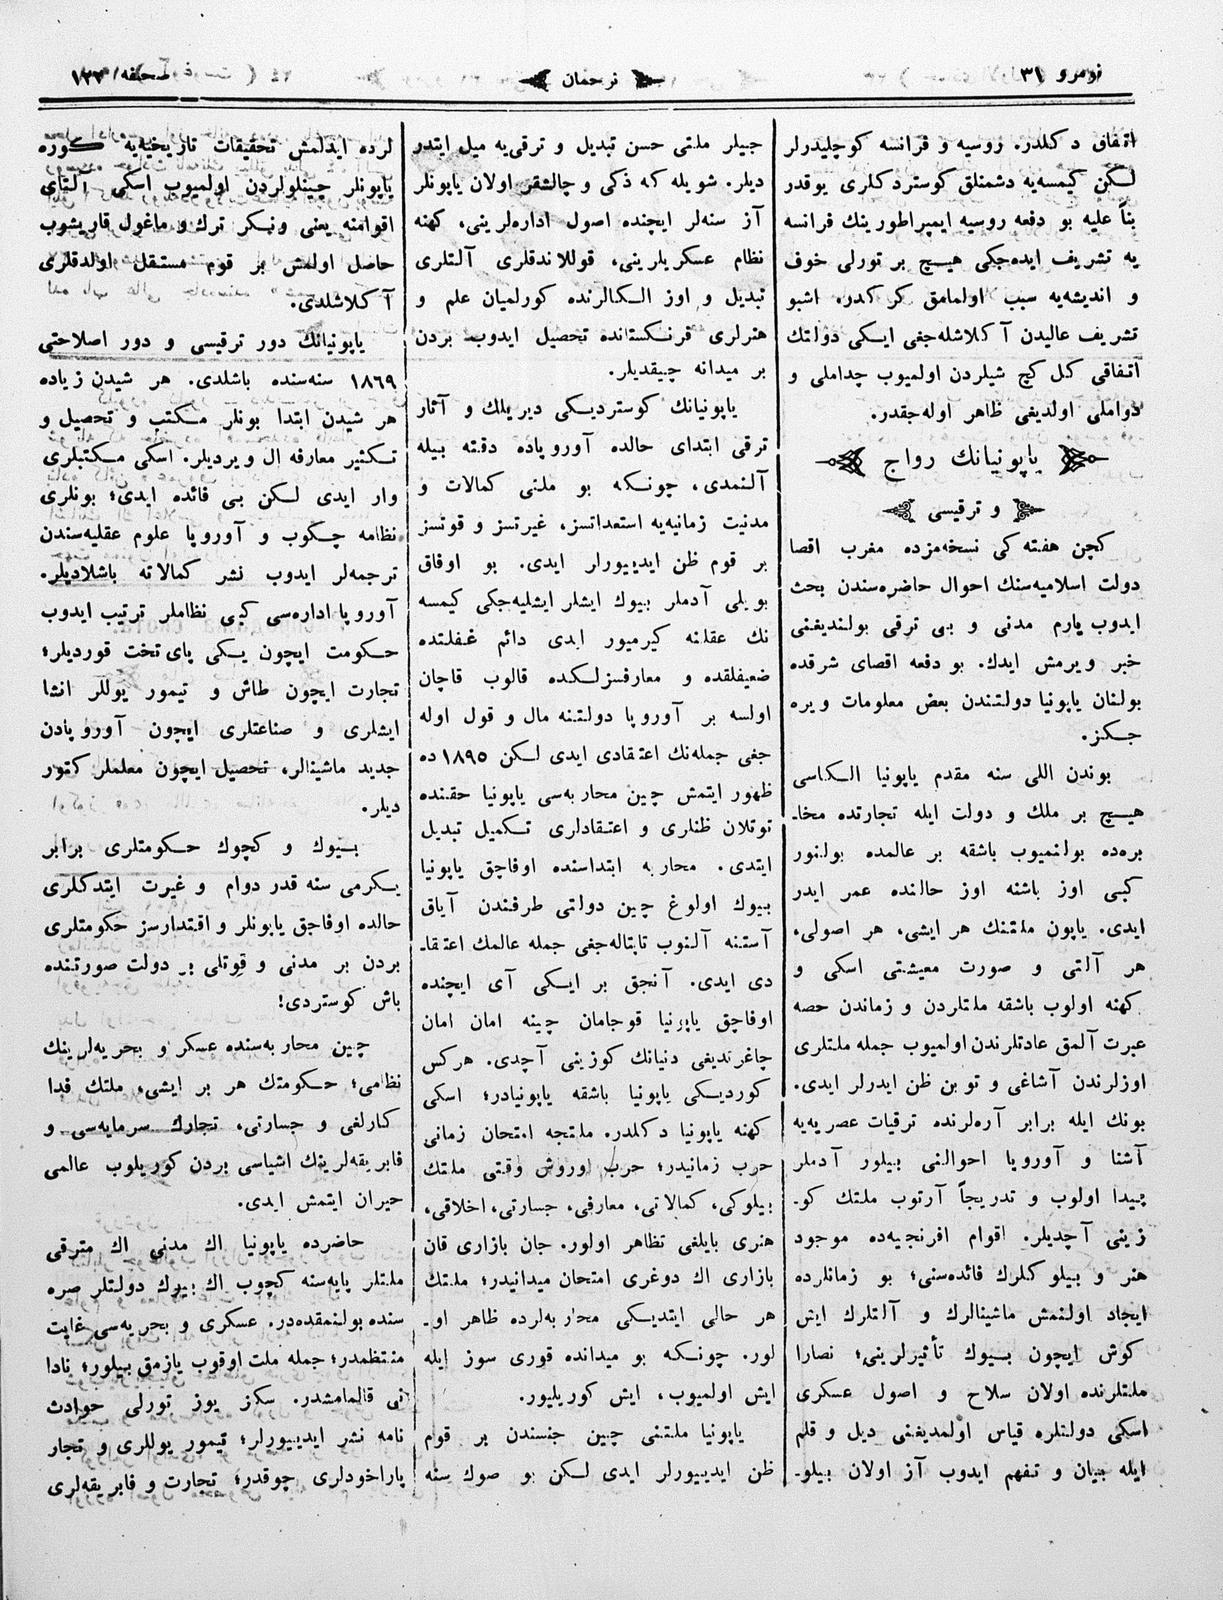 نومرو ٣١
ترجمان
صحیفه/ ١٢٣
اتفاق دکلدر. روسیه و فرانسه کوچلیدرلر
لکن کیمسه‌یه دشمنلق کوستردکلری یوقدر
بنأ علیه بو دفعه روسیه ایمپراطورینك فرانسه
یه تشریف ایده‌جکی هیچ بر تورلی خوف
و اندیشه‌یه سبب اولمامق کرکدر. اشبو
تشریف عالیدن آکلاشله‌جغی ایکی دولتك
اتفاقی کل کچ شیلردن اولمیوب جداملی و
دواملی اولدیغی ظاهر اوله‌جقدر.
یاپونیانك رواج
و ترقیسی
کچن هفته‌کی نسخه‌مزده مغرب اقصا
دولت اسلامیه‌سنك احوال حاضره‌سندن بحث
ایدوب یارم مدنی و بی ترقی بولندیغنی
خبر ویرمش ایدك. بو دفعه اقصای شرقده
بولنان یاپونیا دولتندن بعض معلومات ویره
جکز.
بوندن اللی سنه مقدم یاپونیا الکاسی
هیچ بر ملك و دولت ایله تجارتده مخا-
بره‌ده بولنمیوب باشقه بر عالمده بولنور
کبی اوز باشنه اوز حالنده عمر ایدر
ایدی. یاپون ملتنك هر ایشی، هر اصولی،
هر آلتی و صورت معیشتی اسکی و
کهنه اولوب باشقه ملتلردن و زماندن حصه
عبرت آلمق عادتلرندن اولمیوب جمله ملتلری
اوزلرندن آشاغی و توبن ظن ایدرلر ایدی.
بونك ایله برابر آره‌لرنده ترقیات عصریه‌یه
آشنا و آوروپا احوالنی بیلور آدملر
پیدا اولوب و تدریجاً آرتوب ملتك کو-
زینی آچدیلر. اقوام افرنجیه‌ده موجود
هنر و بیلوکلرك فائده‌سنی؛ بو زمانلرده
ایجاد اولنمش ماشینالرك و آلتلرك ایش
کوش ایچون بیوك تأثیرلرینی؛ نصارا
ملتلرنده اولان سلاح و اصول عسکری
اسکی دولتلره قیاس اولمدیغنی دیل و قلم
ایله بیان و تفهم ایدوب آز اولان بیلو-
جیلر ملتی حسن تبدیل و ترقی‌یه میل ایتدر
دیلر. شویله که ذکی و چالشقر اولان یاپونلر
آز سنه‌لر ایچنده اصول اداره‌لرینی، کهنه
نظام عسکریلرینی، قوللاندقلری آلتلری
تبدیل و اوز الکالرنده کورلمیان علم و
هنرلری فرنکستانده تحصیل ایدوب بردن
بر میدانه چیقدیلر.
یاپونیانك کوستردیکی دیریلك و آثار
ترقی ابتدای حالده آوروپاده دقته بیله
آلنمدی، چونکه بو ملتی کمالات و
مدنیت زمانیه‌یه استعداتسز، غیرتسز و قوتسز
بر قوم ظن ایدییورلر ایدی. بو اوفاق
بویلی آدملر بیوك ایشلر ایشلیه‌جکی کیمسه
نك عقلنه کیرمیور ایدی دائم غفلتده
ضعیفلقده و معارفسزلکده قالوب قاچان
اولسه بر آوروپا دولتنه مال و قول اوله
جغی جمله‌نك اعتقادی ایدی لکن ١٨٩٥ ده
ظهور ایتمش چین محاربه‌سی یاپونیا حقنده
توتلان ظنلری و اعتقادلری تکمیل تبدیل
ایتدی. محاربه ابتداسنده اوفاچق یاپونیا
بیوك اولوغ چین دولتی طرفندن آیاق
آستنه آلنوب تاپتاله‌جغی جمله عالمك اعتقا-
دی ایدی. آنجق بر ایکی آی ایچنده
اوفاچق یاپونیا قوجامان چینه امان امان
چاغرندیغی دنیانك کوزینی آچدی. هرکس
کوردیکی یاپونیا باشقه یاپونیادر؛ اسکی
کهنه یاپونیا دکلدر. ملتجه امتحان زمانی
حرب زمانیدر؛ حرب اوروش وقتی ملتك
بیلوکی، کمالاتی، معارفی، جسارتی، اخلاقی،
هنری بایلغی تظاهر اولور. جان بازاری قان
بازاری اك دوغری امتحان میدانیدر؛ ملتك
هر حالی ایتدیکی محاربه‌لرده ظاهر او-
لور. چونکه بو میدانده قوری سوز ایله
ایش اولمیوب، ایش کوریلیور.
یاپونیا ملتنی چین جنسندن بر قوم
ظن ایدییورلر ایدی لکن بو صوك سنه
لرده ایدلمش تحقیقات تاریخیه‌یه کوره
یاپونلر چینلولردن اولمیوب اسکی آلتای
اقوامنه یعنی ونکر ترك و ماغول قاریشوب
حاصل اولمش بر قوم مستقل اولدقلری
آکلاشلدی.
یاپونیانك دور ترقیسی و دور اصلاحتی
١٨٦٩ سنه‌سنده باشلدی. هر شیدن زیاده
هر شیدن ابتدا بونلر مکتب و تحصیل و
تکثیر معارفه ال ویردیلر. اسکی مکتبلری
وار ایدی لکن بی فائده ایدی؛ بونلری
نظامه چکوب و آوروپا علوم عقلیه‌سندن
ترجمه‌لر ایدوب نشر کمالاته باشلادیلر.
آوروپا اداره‌سی کبی نظاملر ترتیب ایدوب
حکومت ایچون یکی پای تخت قوردیلر؛
تجارت ایچون طاش و تیمور یوللر انشا
ایشلری و صناعتلری ایچون آوروپادن
جدید ماشینالر، تحصیل ایچون معلملر کتور
دیلر.
بیوك و کچوك حکومتلری برابر
یکرمی سنه قدر دوام و غیرت ایتدکلری
حالده اوفاجق یاپونلر و اقتدارسز حکومتلری
بردن بر مدنی و قوتلی بر دولت صورتنده
باش کوستردی!
چین محاربه‌سنده عسکر و بحریه‌لرینك
نظامی؛ حکومتك هر بر ایشی، ملتك فدا
کارلغی و جسارتی، تجارك سرمایه‌سی و
فابریقه‌لرینك اشیاسی بردن کوریلوب عالمی
حیران ایتمش ایدی.
حاضرده یاپونیا اك مدنی اك مترقی
ملتلر پایه‌سنه کچوب اك بیوك دولتلر صره
سنده بولنمقده‌در. عسکری و بحریه‌سی غایت
منتظمدر؛ جمله ملت اوقوب یازمق بیلور؛ نادا
نی قالمامشدر. سکز یوز تورلی حوادث
نامه نشر ایدییورلر؛ تیمور یوللری و تجار
پاراخودلری چوقدر؛ تجارت و فابریقه‌لری